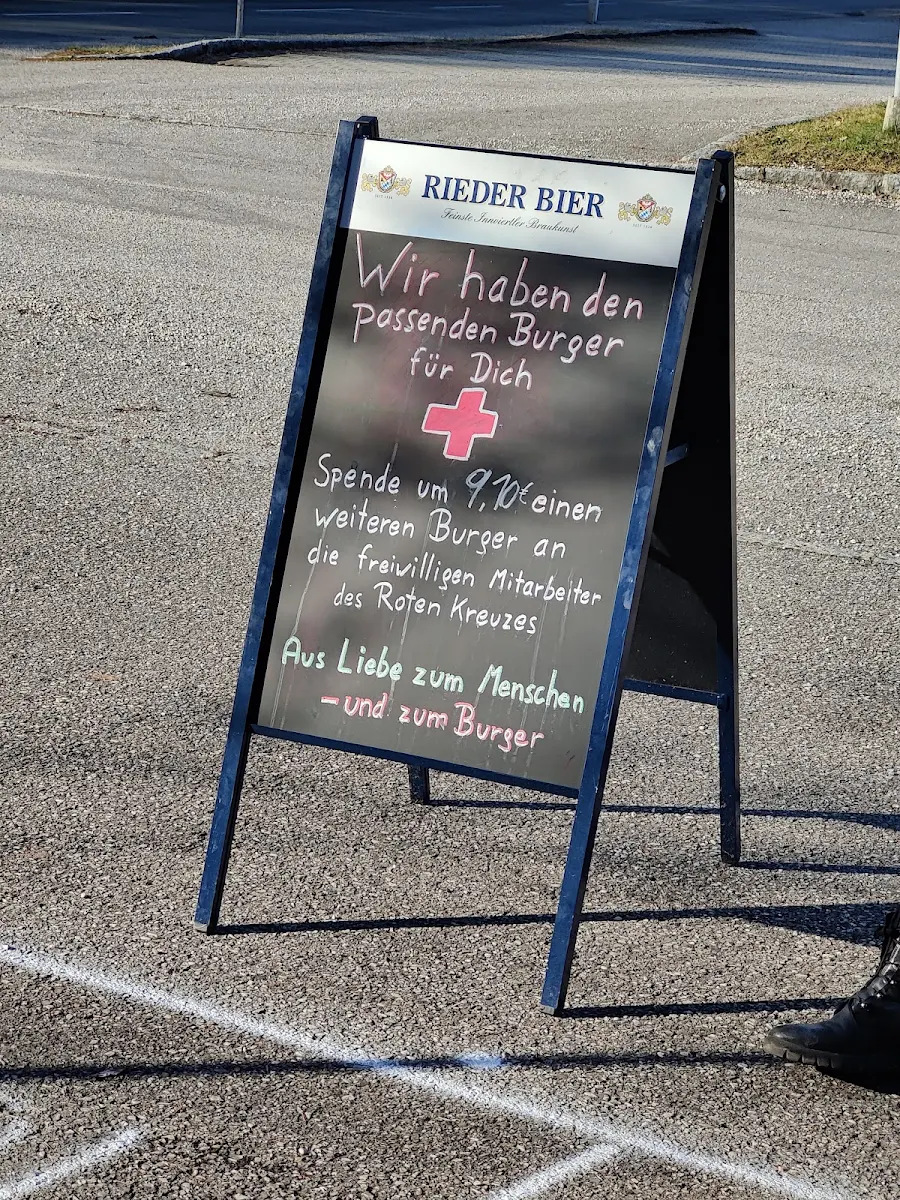 RIEDER BIER
Feinste Innviertler Braukunst
Wir haben den
passenden Burger
für Dich
Spende um 9,10€ einen
weiteren Burger an
die freiwilligen Mitarbeiter
des Roten Kreuzes
Aus Liebe zum Menschen
- und zum Burger